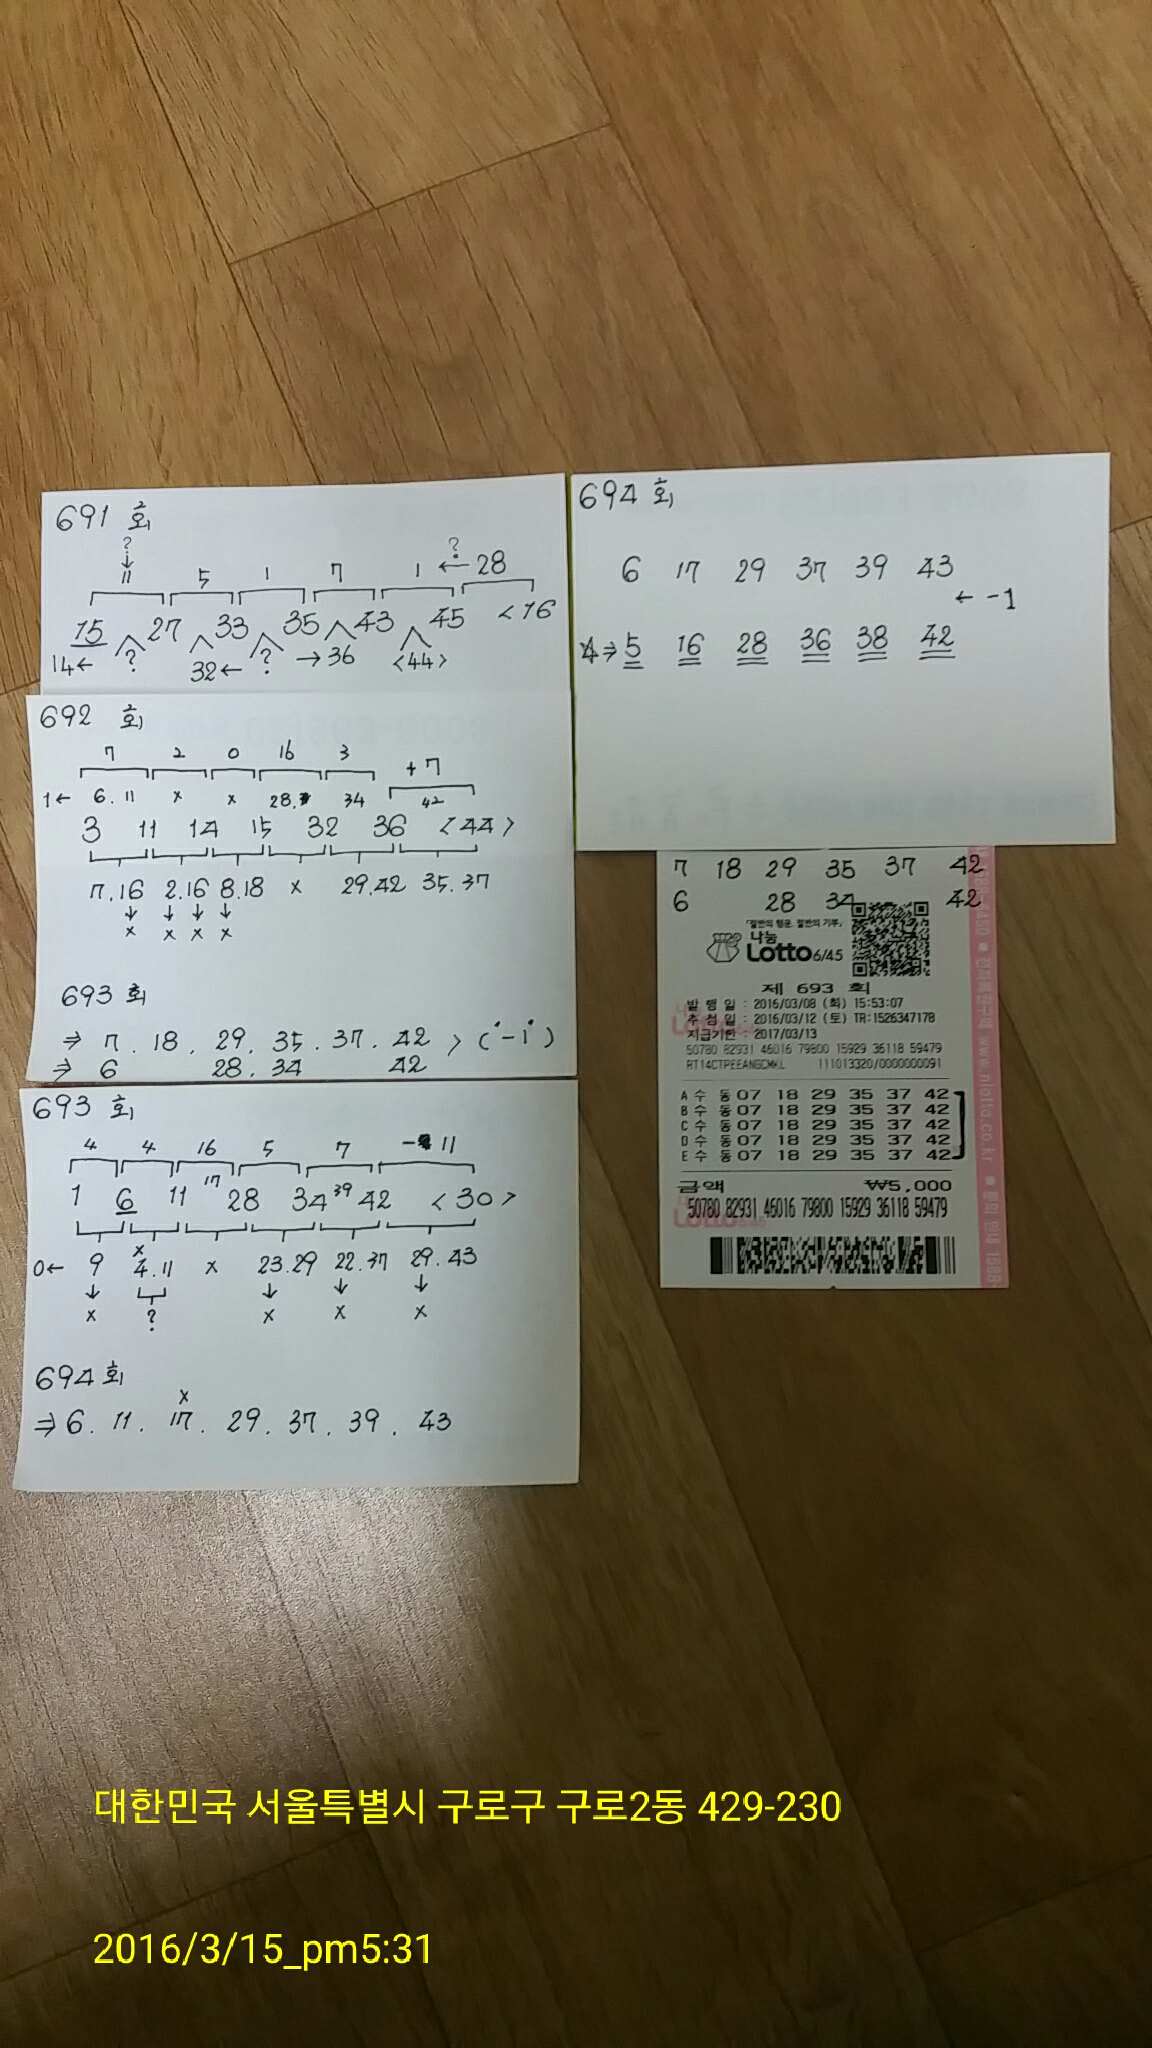 691 회
?
↓
11 5 1 7 1 ←? 28
15 27 33 35 43 45 <16
14← ? 32← ? →36 <44>
692 회
7 2 0 16 3 +7
1← 6.11 x x 28. 34 42
3 11 14 15 32 36 <44>
7.16 2.16 8.18 x 29.42 35.37
↓ ↓ ↓ ↓
x x x x
693 회
⇒ 7. 18. 29. 35. 37. 42 > (-1)
⇒ 6 28. 34 42
693 회
4 4 16 5 7 - 11
1 6 11 17 28 34 39 42 <30>
x
0← 9 4.11 x 23.29 22.37 29.43
↓ ↓ ↓ ↓
x ? x x x
694 회
x
⇒ 6. 11. 17. 29. 37. 39. 43
694 회
6 17 29 37 39 43
← -1
⇒ 5 16 28 36 38 42
7 18 29 35 37 42
6 28 34 42
「절반의 행운, 절반의 기부」
나눔
Lotto 6/45
제 693 회
발 행 일 : 2016/03/08 (화) 15:53:07
추 첨 일 : 2016/03/12 (토) TR:1526347178
지급기한 : 2017/03/13
50780 82931 46016 79800 15929 36118 59479
111013320/0000000091
A 수 동 07 18 29 35 37 42
B 수 동 07 18 29 35 37 42
C 수 동 07 18 29 35 37 42
D 수 동 07 18 29 35 37 42
E 수 동 07 18 29 35 37 42
금액 ₩5,000
50780 82931 46016 79800 15929 36118 59479
www.nlotto.co.kr
대한민국 서울특별시 구로구 구로2동 429-230
2016/3/15_pm5:31